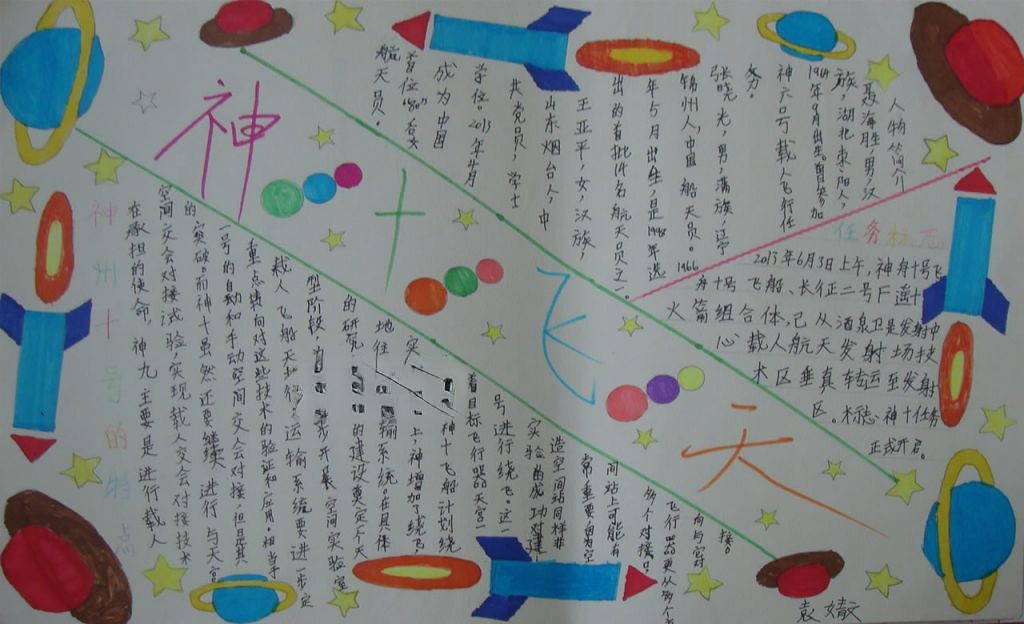 神十飞天
人物简介
聂海胜,男,汉
族,湖北枣阳人,
1964年9月出生。曾参加
神六号载人飞行任
务。
张晓光,男,满族,辽宁
锦州人,中国 航天员。1966
年5月出生,是1998年选
出的首批14名航天员之一。
王亚平,女,汉族,
山东烟台人,中
共党员,学士
学位。2013年4月
成为中国
首位"80"后女
航天员。
任务标志
2013年6月3日上午,神舟十号飞
舟十号 飞船、长征二号F遥十
火箭组合体,已从酒泉卫星发射中
心载人航天发射场技
术区垂直转运至发射
区。标志神十任务
正式开启。
神州十号的特点
在承担的使命,神九 主要是进行载人
空间交会对接试验,实现载人交会对接技术
的突破。而神十虽然还要继续 进行与天宫
一号的自动和手动空间交会对接,但其
重点转向对这些技术的验证和应用。相当
载人 飞船天和 运输系统要进一步定
型阶段, 开展 空间实验室
的研究 的建设奠定
地往 输系统。在具体
实 上,神 增加了绕飞
神十飞船计划绕
着目标飞行器天宫一
号进行绕飞。这一
实验的成功对建
造空间站同样非
常重要 因为空
间站上可能有
多个对接口,
飞行器要从多个
向与空对
接。
袁婧